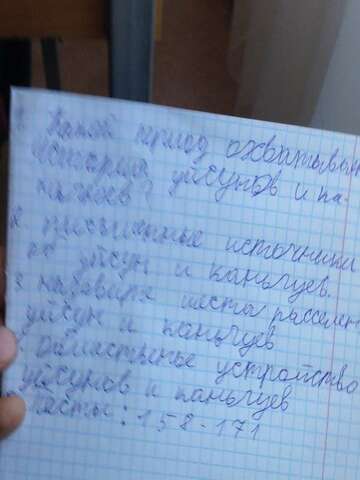 Какой период охватыва
История уйсунов и ка-
нгюев?
2 письменные источники
по уйсун и каньгуев.
3 назовите места расселен
уйсун и каньгуев
Общественное устройство
уйсунов и каньгуев
Тесты: 158-171